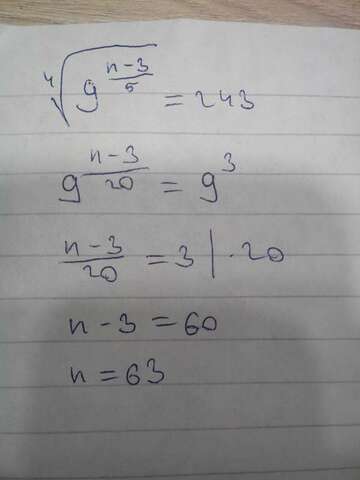 ⁴√(9^((n-3)/5)) = 243
9^((n-3)/20) = 9^3
(n-3)/20 = 3 | · 20
n - 3 = 60
n = 63